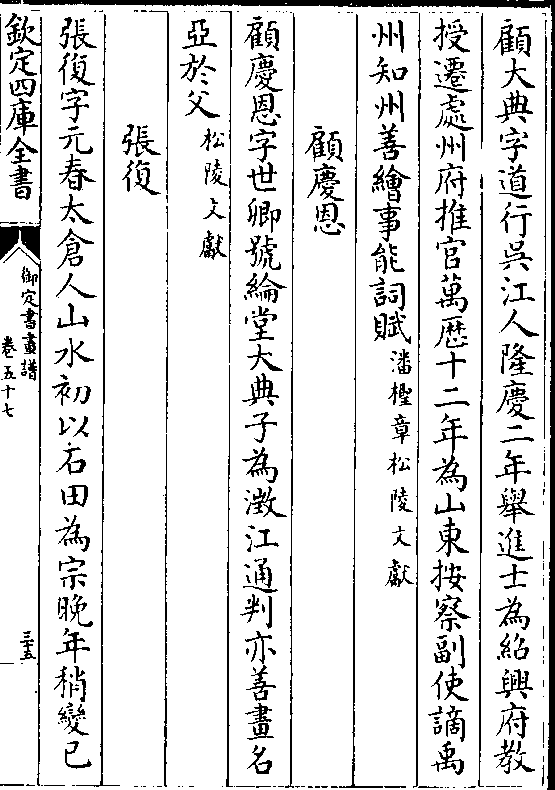 顧大典字道行吳江人隆慶二年舉進士為紹興府教
授遷處州府推官萬歴十二年為山東按察副使謫禹
州知州善繪事能詞賦潘檉章松陵文獻
顧慶恩
顧慶恩字世卿號綸堂大典子為澂江通判亦善畫名
亞於父松陵文獻
張復
張復字元春太倉人山水初以石田為宗晩年稍變已
欽定四庫全書
御定書畫譜
卷五十七
三十五